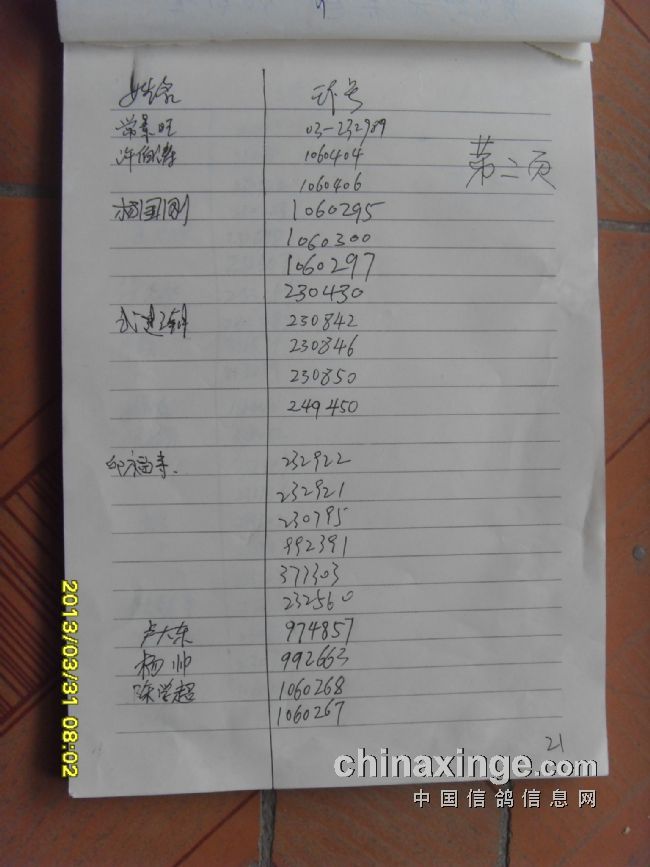 姓名 环号
常景旺 03-232989
许伯涛 1060404
第二页
1060406
杨国刚 1060295
1060300
1060297
230430
230842
230846
230850
249450
232922
232921
230795
892391
371303
232560
卢大东 974857
杨帅 992663
陈学超 1060268
1060267
21
2013/03/31 08:02
chinaxinge.com
中国信鸽信息网